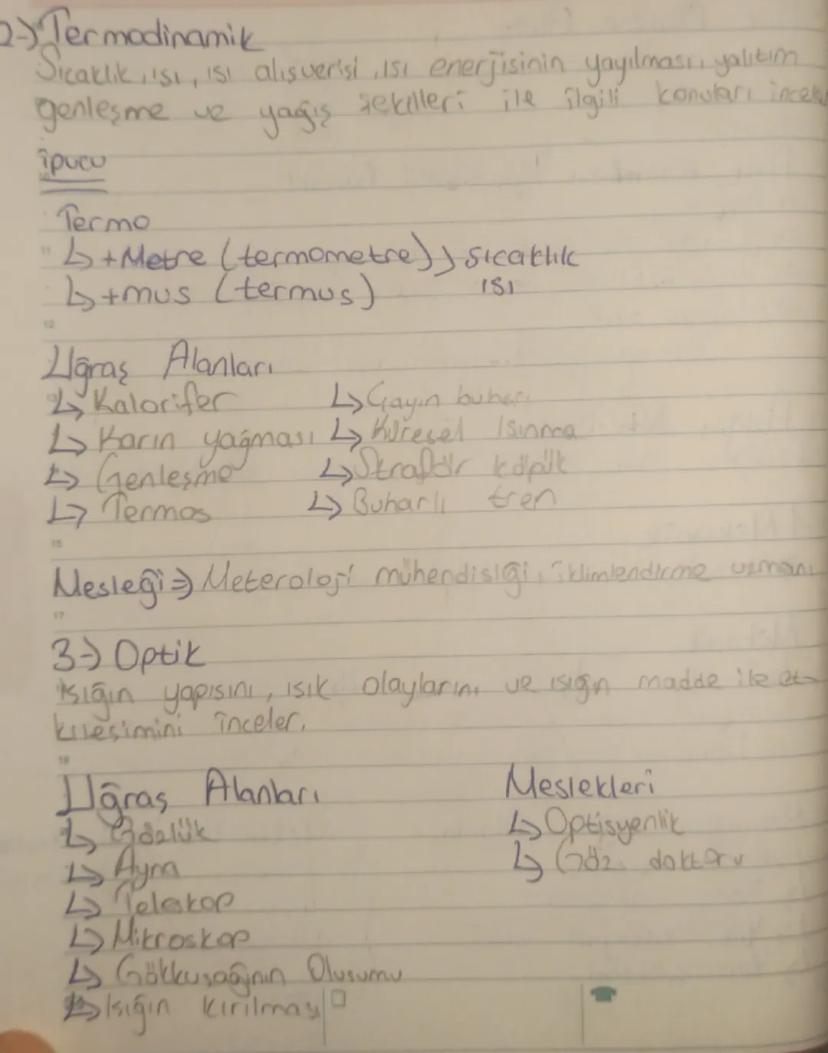 2-) Termodinamik
Sıcaklık, ısı, ısı alışverisi, ısı enerjisinin yayılması, yalıtım
genleşme ve yağış şekilleri ile ilgili konuları incele
ipucu
Termo
↳ +Metre (termometre) } sıcaklık
↳ +mus (termus) ısı
12
Uğraş Alanları
↳ Kalorifer ↳ Çayın buharı
↳ Karın yağması ↳ Küresel Isınma
↳ Genleşme ↳ Strafor köpük
↳ Termos ↳ Buharlı tren
Mesleği ⇒ Meteroloji mühendisliği, iklimlendirme uzmanı
17
3-) Optik
Işığın yapısını, ışık olaylarını ve ışığın madde ile et-
kileşimini inceler.
Uğraş Alanları Meslekleri
↳ Gözlük ↳ Optisyenlik
↳ Ayna ↳ Göz doktoru
↳ Teleskop
↳ Mikroskop
↳ Gökkuşağının Oluşumu
↳ Işığın kırılması